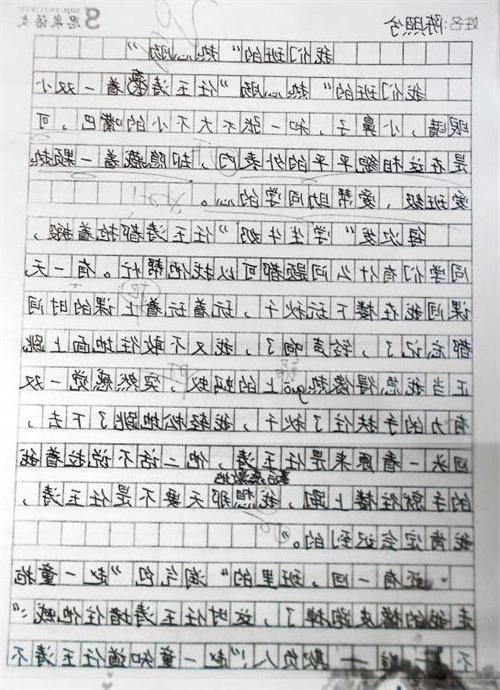 思泉语文
SIQUANYUWEN
姓名：陈照兮
我们班的“热心肠”
我们班的“热心肠”任王涛着一双小
眼睛，小鼻子，和一张不大不小的嘴巴，可
是在这相貌平平的外表内，却隐藏着一颗热
爱班级，爱帮助同学的心。
每次发“学生牛奶”任王涛都抢着搬，
同学们有什么问题都可以找他帮忙。有一天，
课间我在楼下玩秋千，玩着玩着上课的时间
都忘记了，铃声响了，我又不敢往地面上跳
正当我急得像热guō上的蚂蚁，突然感觉一双
有力的手扶住了秋千，我轻松地跳了下去，
回头一看原来是任王涛，他二话不说拉着我
事后感激地
的手就往楼上蹿，我想那天要不是任王涛，
我肯定会迟到的。”
还有一回，班里的“淘气包”赵一童抢
走我的橡皮跑掉了，这时任王涛堵住他喊：“
不——欺负人！”赵一童知道任王涛不